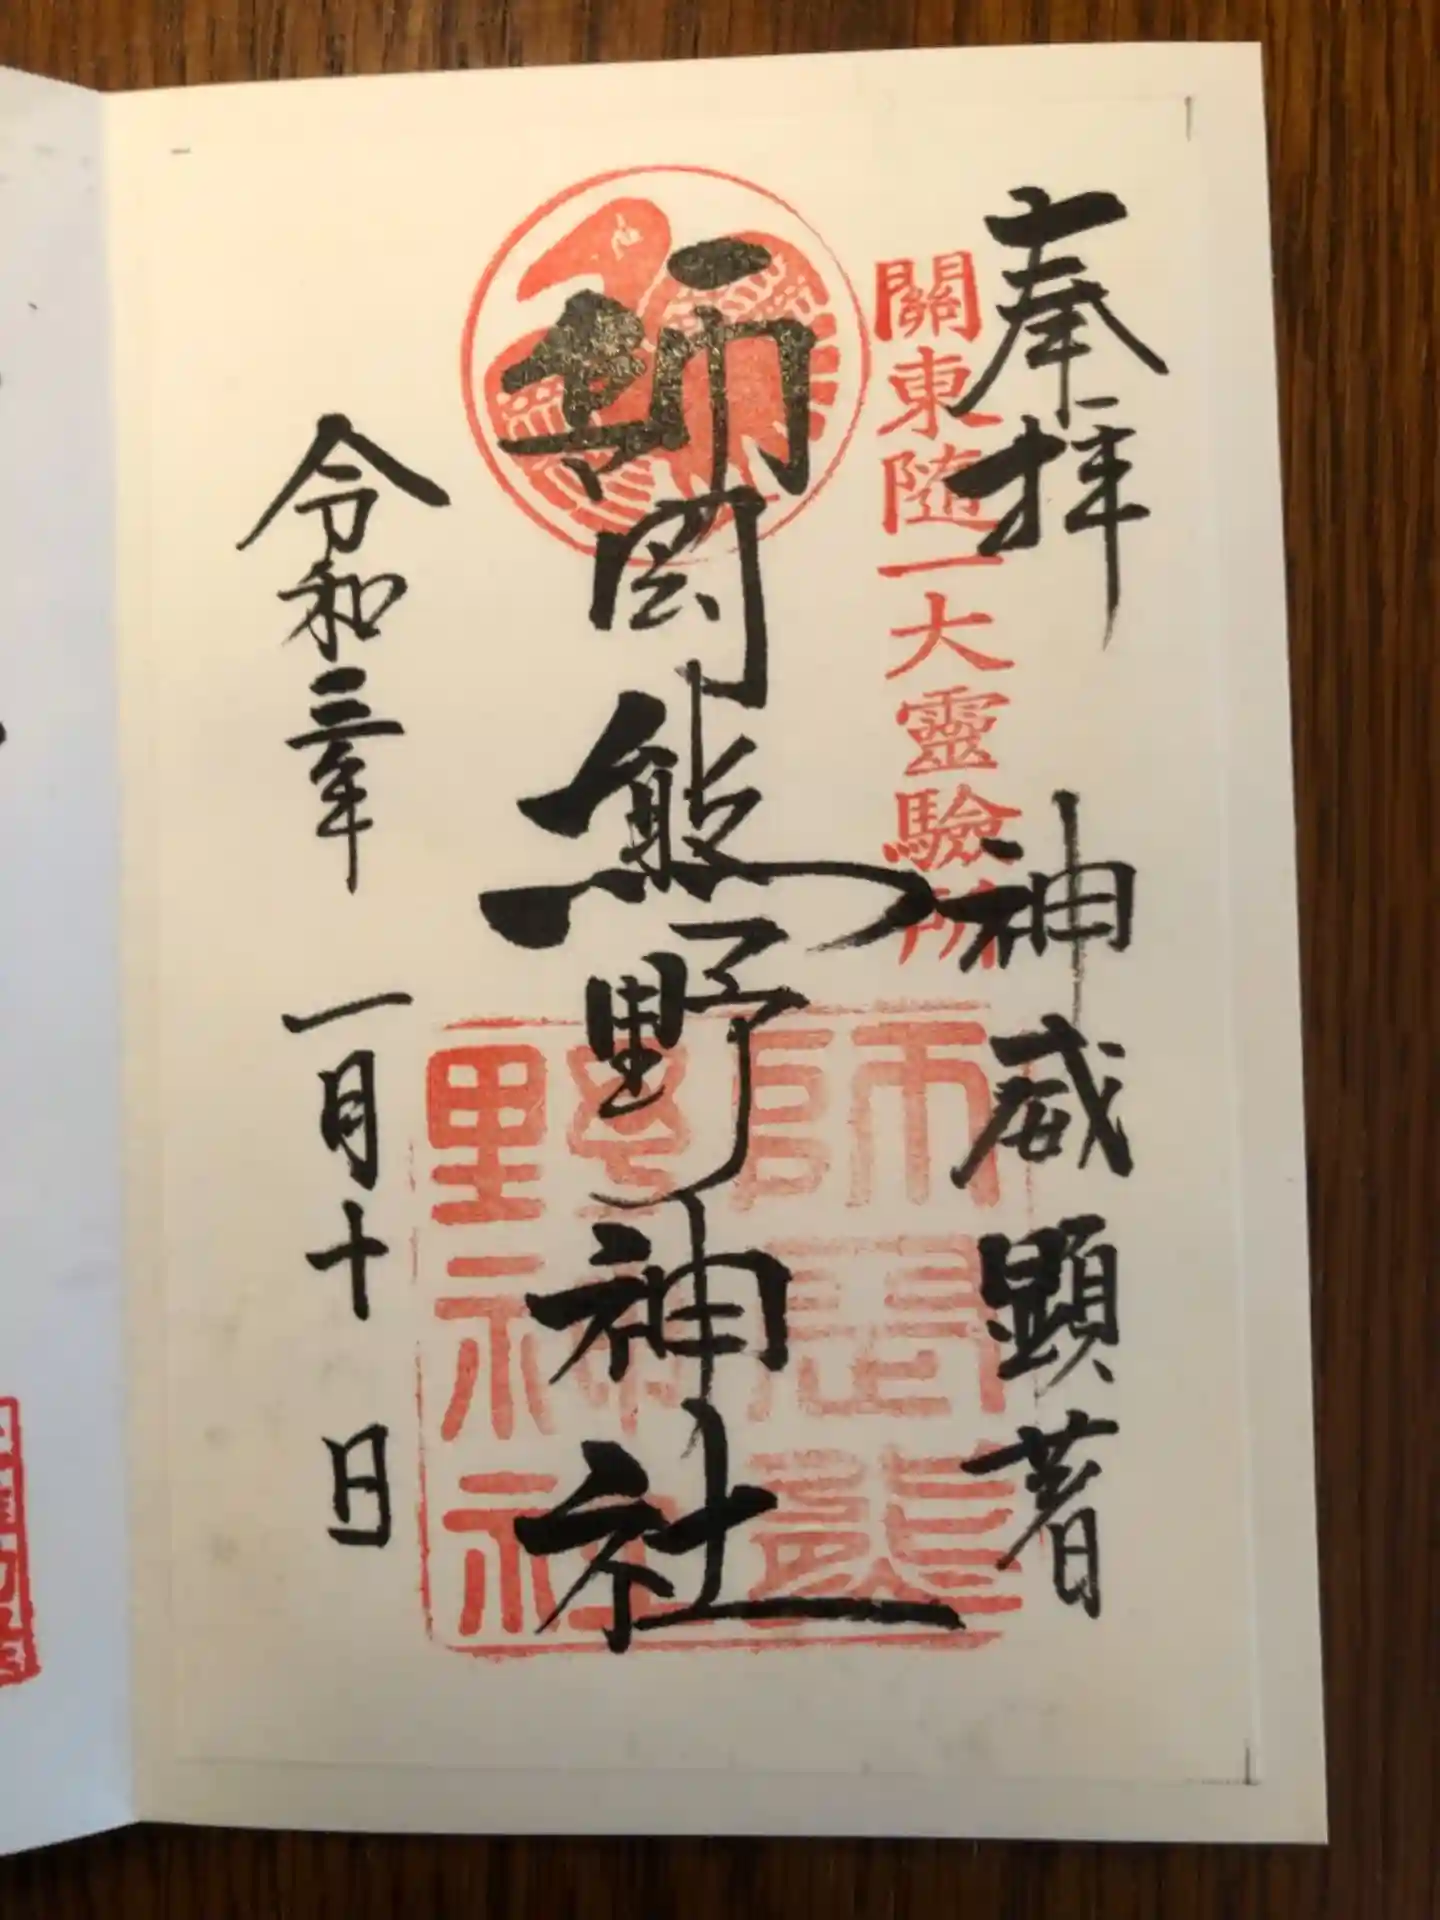 奉拝
神威顕著
關東随一大靈驗所
師岡熊野神社
師岡熊
野神社
令和三年 一月十日